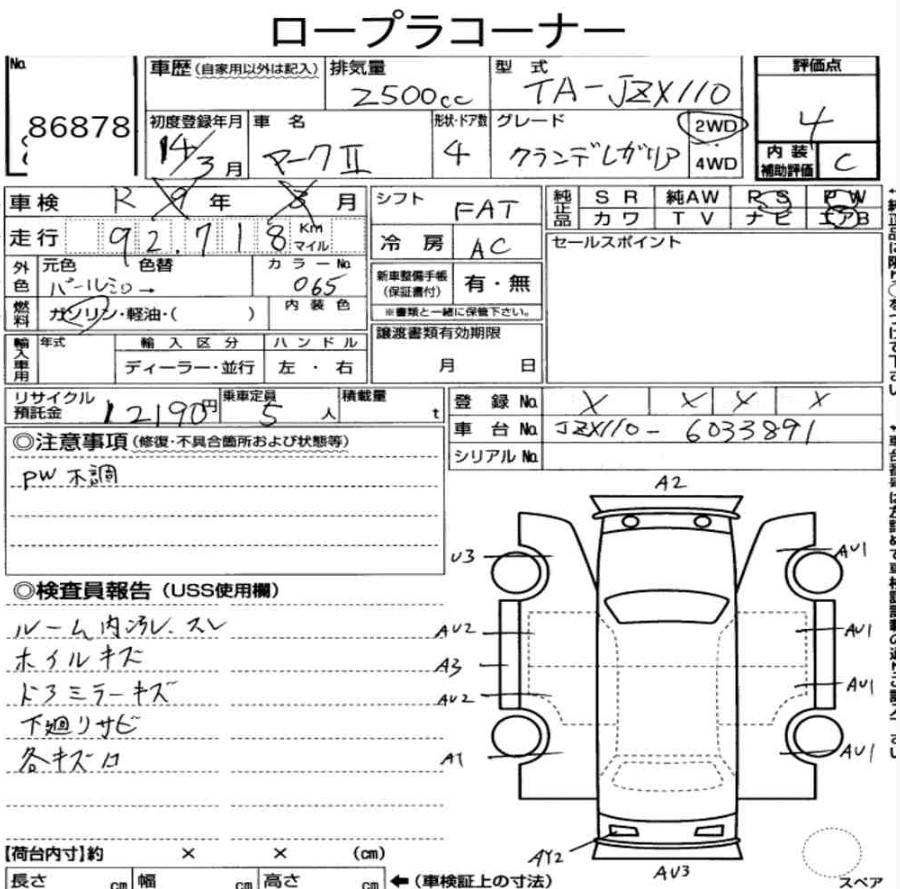 ロープラコーナー
No.
86878
車歴 (自家用以外は記入)
排気量
2500cc
型 式
TA-JZX110
評価点
4
初度登録年月
14/3 月
車 名
マークⅡ
形状・ドア数
4
グレード
グランデレガリア
2WD
4WD
内装補助評価
C
車検 R 9 年 3 月
シフト
FAT
純正品
SR 純AW RS PW
カワ TV ナビ エアB
走行 92.718 Km マイル
冷房
AC
セールスポイント
外色
元色 色替
パールシロ→
カラーNo.
065
新車整備手帳
(保証書付)
有・無
※書類と一緒に保管下さい。
燃料
ガソリン・軽油・( )
内装色
輸入車用
年式
輸入区分
ディーラー・並行
ハンドル
左・右
譲渡書類有効期限
月 日
リサイクル預託金
12190円
乗車定員
5 人
積載量
t
登録No. X X X X
車台No. JZX110-6033891
シリアルNo.
◎注意事項 (修復・不具合箇所および状態等)
PW 不調
◎検査員報告 (USS使用欄)
ルーム内汚レ.スレ
ホイルキズ
ドアミラーキズ
下廻リサビ
各キズ凹
A2
U3
AU1
AU2
AU1
A3
AU2
AU1
A1
AU1
AY2
AU3
スペア
【荷台内寸】約 × × (cm)
長さ cm 幅 cm 高さ cm ←(車検証上の寸法)